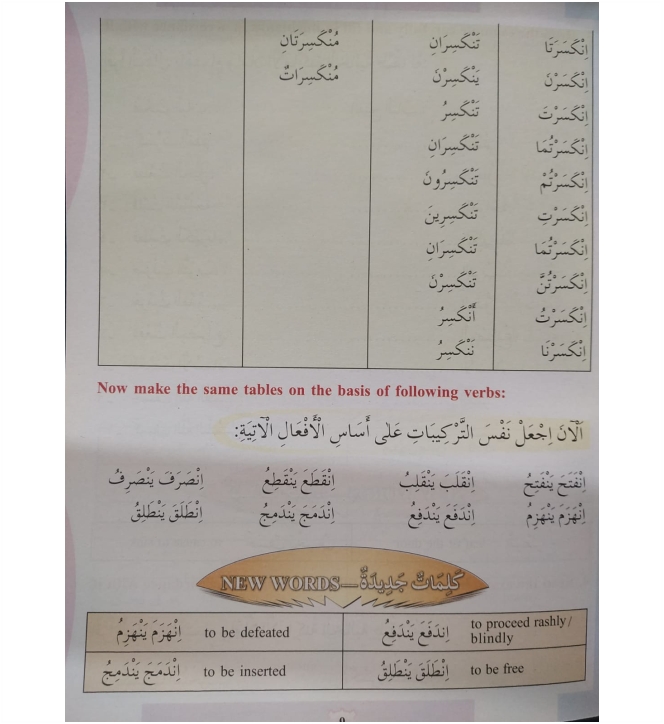 اِنْكَسَرَتَا تَنْكَسِرَانِ مُنْكَسِرَتَانِ
اِنْكَسَرْنَ يَنْكَسِرْنَ مُنْكَسِرَاتٌ
اِنْكَسَرْتَ تَنْكَسِرُ
اِنْكَسَرْتُمَا تَنْكَسِرَانِ
اِنْكَسَرْتُمْ تَنْكَسِرُونَ
اِنْكَسَرْتِ تَنْكَسِرِينَ
اِنْكَسَرْتُمَا تَنْكَسِرَانِ
اِنْكَسَرْتُنَّ تَنْكَسِرْنَ
اِنْكَسَرْتُ أَنْكَسِرُ
اِنْكَسَرْنَا نَنْكَسِرُ
Now make the same tables on the basis of following verbs:
اَلْآنَ اِجْعَلْ نَفْسَ التَّرْكِيبَاتِ عَلَى أَسَاسِ الْأَفْعَالِ الْآتِيَةِ:
اِنْفَتَحَ يَنْفَتِحُ اِنْقَلَبَ يَنْقَلِبُ اِنْقَطَعَ يَنْقَطِعُ اِنْصَرَفَ يَنْصَرِفُ
اِنْهَزَمَ يَنْهَزِمُ اِنْدَفَعَ يَنْدَفِعُ اِنْدَمَجَ يَنْدَمِجُ اِنْطَلَقَ يَنْطَلِقُ
NEW WORDS—كَلِمَاتٌ جَدِيدَةٌ
اِنْهَزَمَ يَنْهَزِمُ to be defeated اِنْدَفَعَ يَنْدَفِعُ to proceed rashly/
blindly
اِنْدَمَجَ يَنْدَمِجُ to be inserted اِنْطَلَقَ يَنْطَلِقُ to be free